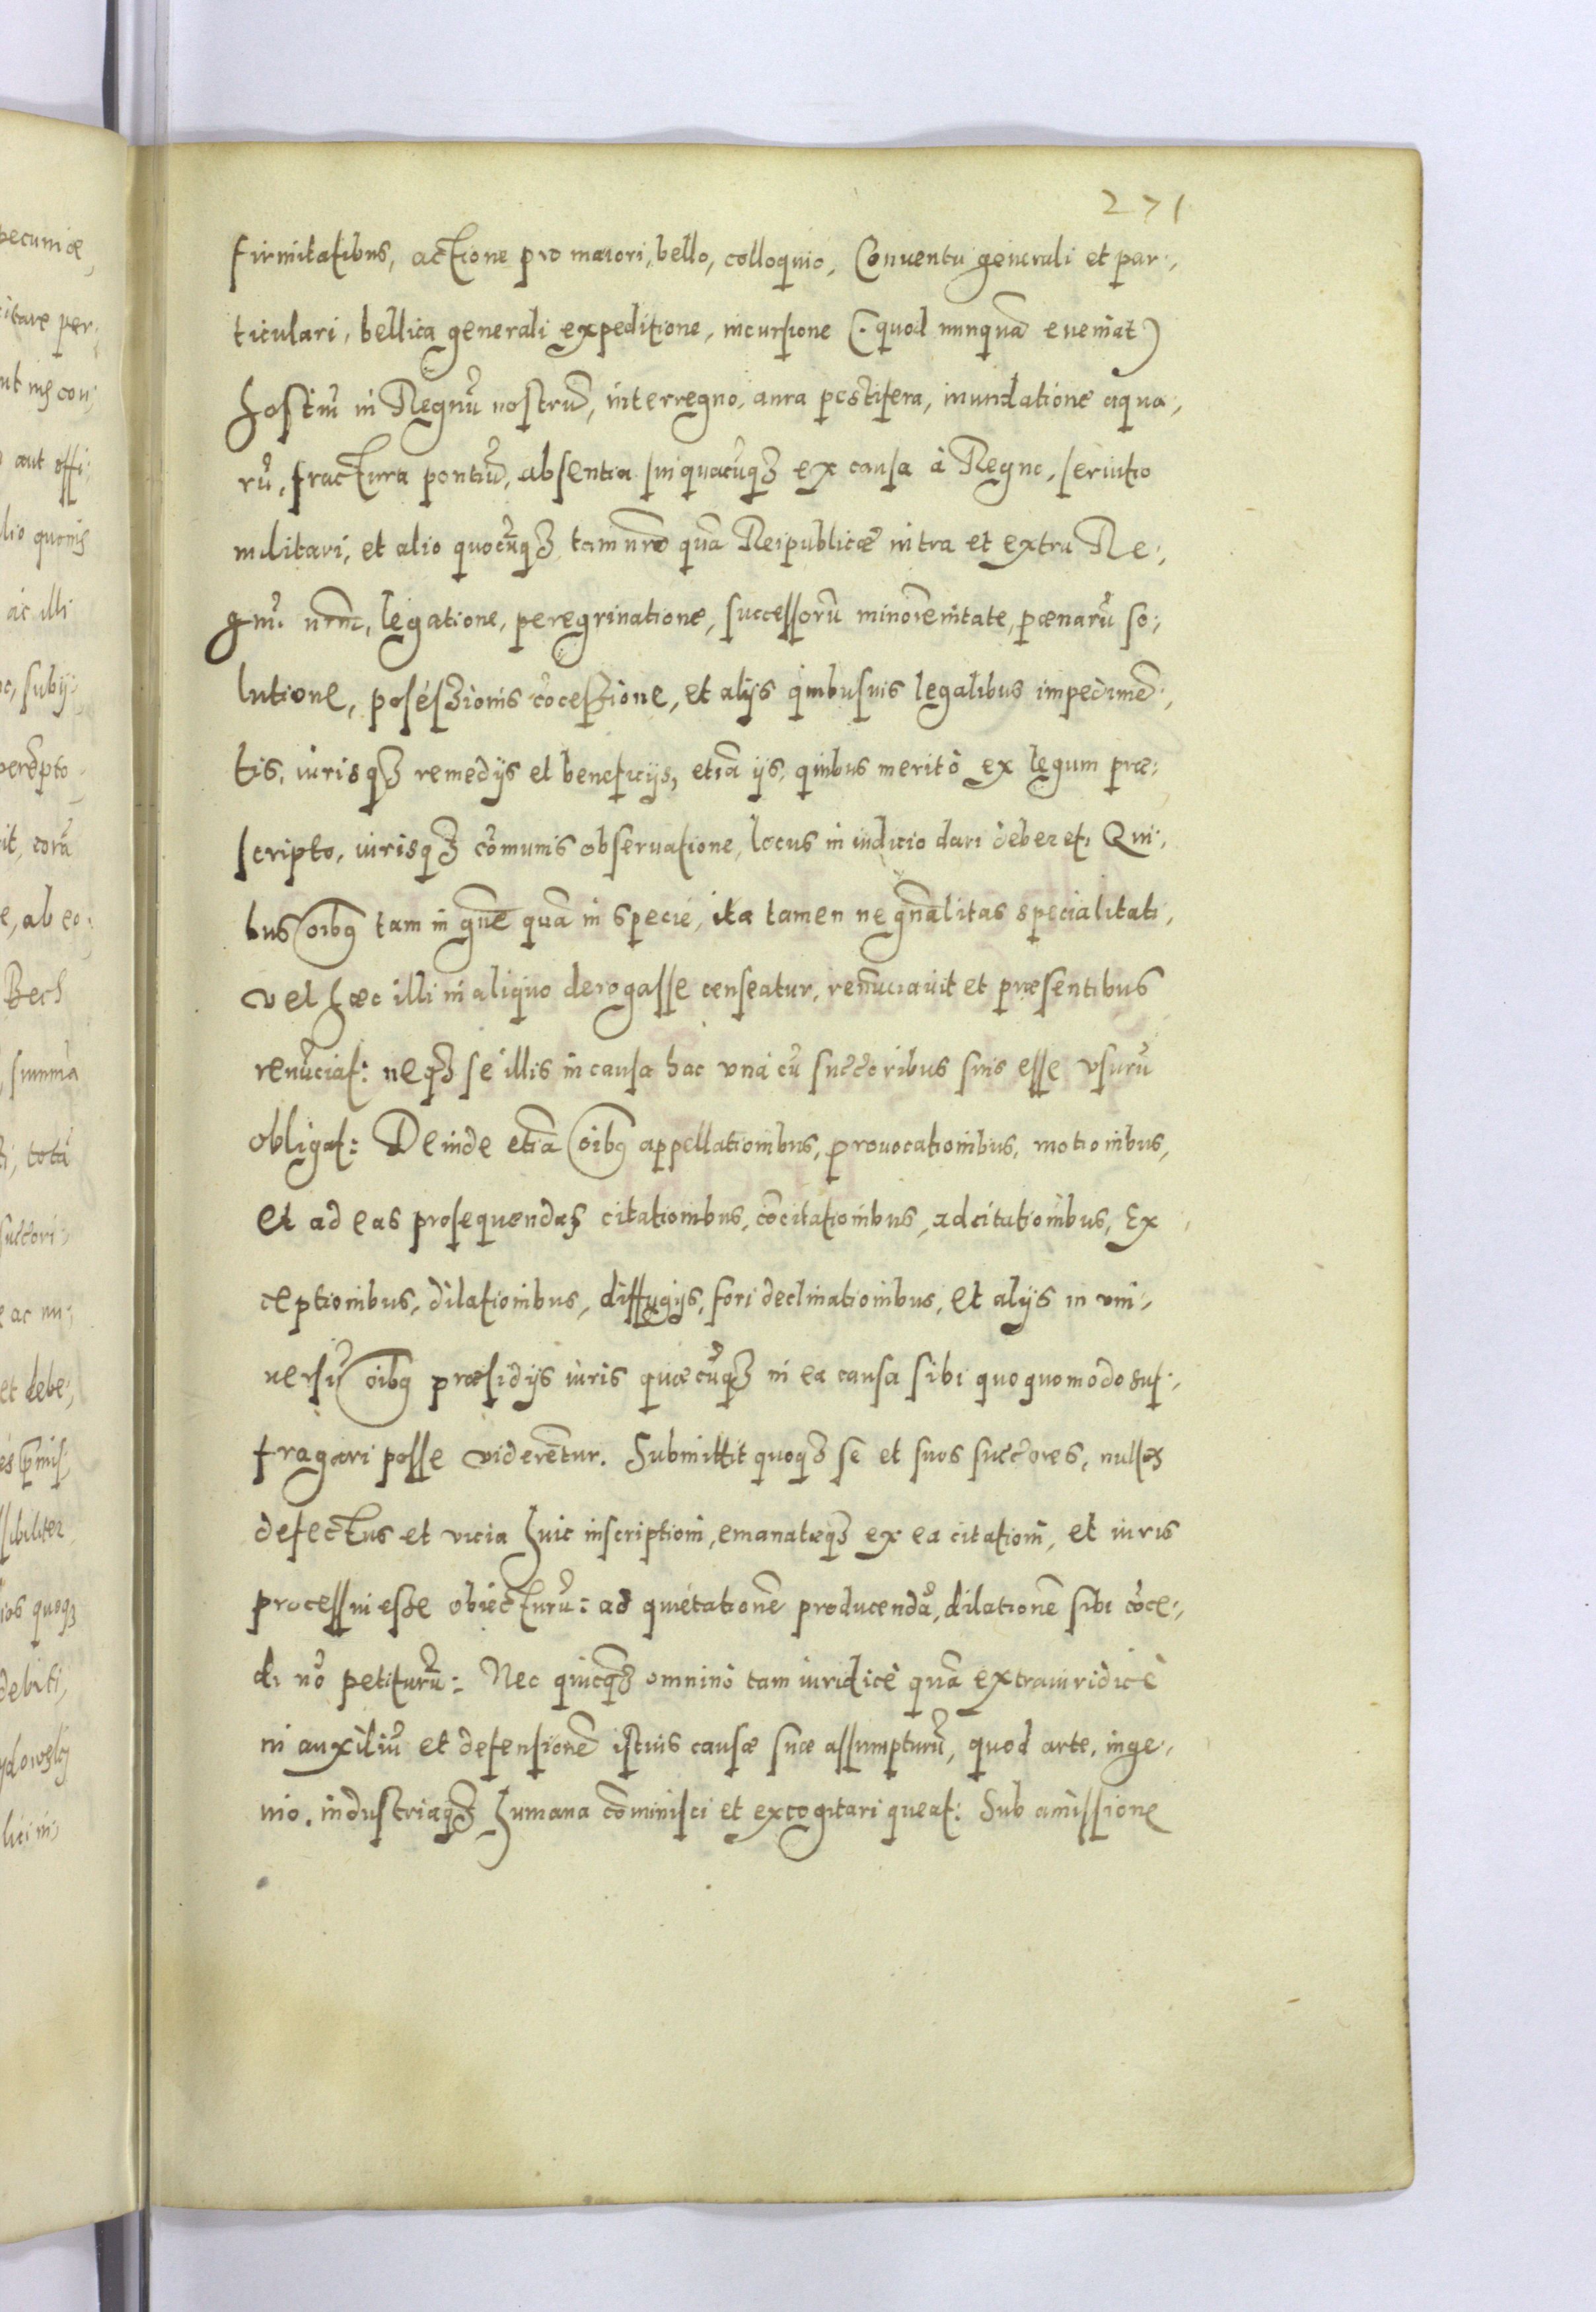 271
firmitatibus, actione pro maiori, bello, colloquio, Conuentu generali et par:,
ticulari, bellica generali expeditione, incursione (: quod nunquā eveniat)
hostiū in Regnū nostrū, interregno, aura pestifera, inundatione aqua,
rū, fractura pontiū, absentia sui quacūq3 ex causa à Regno, seruitio
militari, et alio quocūq3 tam nrō quā Reipublicæ intra et extra Re:,
gnū nrm̄, legatione, peregrinatione, successorū minorēnitate, pœnarū so:,
lutione, poséssionis cōcessione, et alijs quibusuis legalibus impedimē:,
tis, iurisq3 remedijs et beneficijs, etiā ijs, quibus meritò ex legum præ:,
scripto, iurisq3 cōmunis obseruatione, locus in iudicio dari deberet, Qui:,
bus oībq tam in gn̄e quā in specie, ita tamen ne gn̄alitas specialitati,
vel hæc illi in aliquo derogasse censeatur, renūciauit et præsentibus
renūciat: neq3 se illis in causa hac unà cū succōribus suis esse vsurū
obligat: Deinde etiā oībq appellationibus, prouocationibus, motionibus,
et ad eas prosequendas citationibus, cōcitationibus, adcitationibus, Ex
ceptionibus, dilationibus, diffugijs, fori declinationibus, et alijs in vni:,
uersū oībq præsidijs iuris quæcūq3 in ea causa sibi quoquomodo suf:,
fragari posse viderētur. Submittit quoq3 se et suos succōres, nullos
defectus et vicia huic inscriptioni, emanatæq3 ex ea citationi, et iuris
processui esse obiecturū: ad quietationē producendā, dilationē sibi cōce:,
di nō petiturū: Nec quicq̄3 omninò tam iuridicè quā extraiuridicè
in auxiliū et defensionē istius causæ suæ assumpturū, quod arte, inge:,
nio, industriaq3 humana cōminisci et excogitari queat: Sub amissione